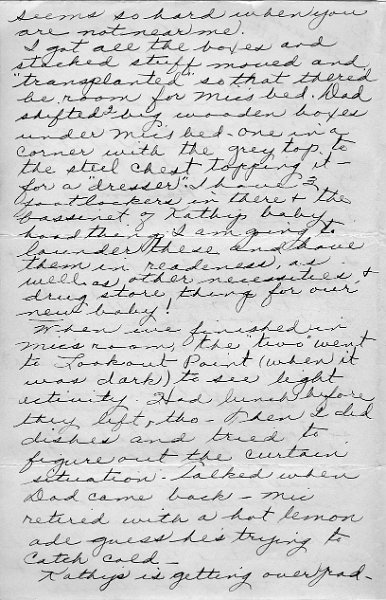 seems so hard when you
are not near me.
I got all the boxes and
stacked stuff moved and
"transplanted" so that there'd
be room for Mic's bed. Dad
shifted 2 big wooden boxes
under Mic's bed - one in a
corner with the grey top, to
the steel chest topping it -
for a "dresser". I have 3
footlockers in there & the
bassinet & Kathys baby
hood things. I am going to
launder these and have
them in readeness, as
well as other necessities &
drug store things for our
new baby!
When we finished in
Mics room, the "two" went
to Lookout Point (when it
was dark) to see light
activity. Had lunch before
they left, tho - Then I did
dishes and tried to
figure out the curtain
situation - Talked when
Dad came back - Mic
retired with a hot lemon
ade guess he's trying to
catch cold -
Kathys is getting over